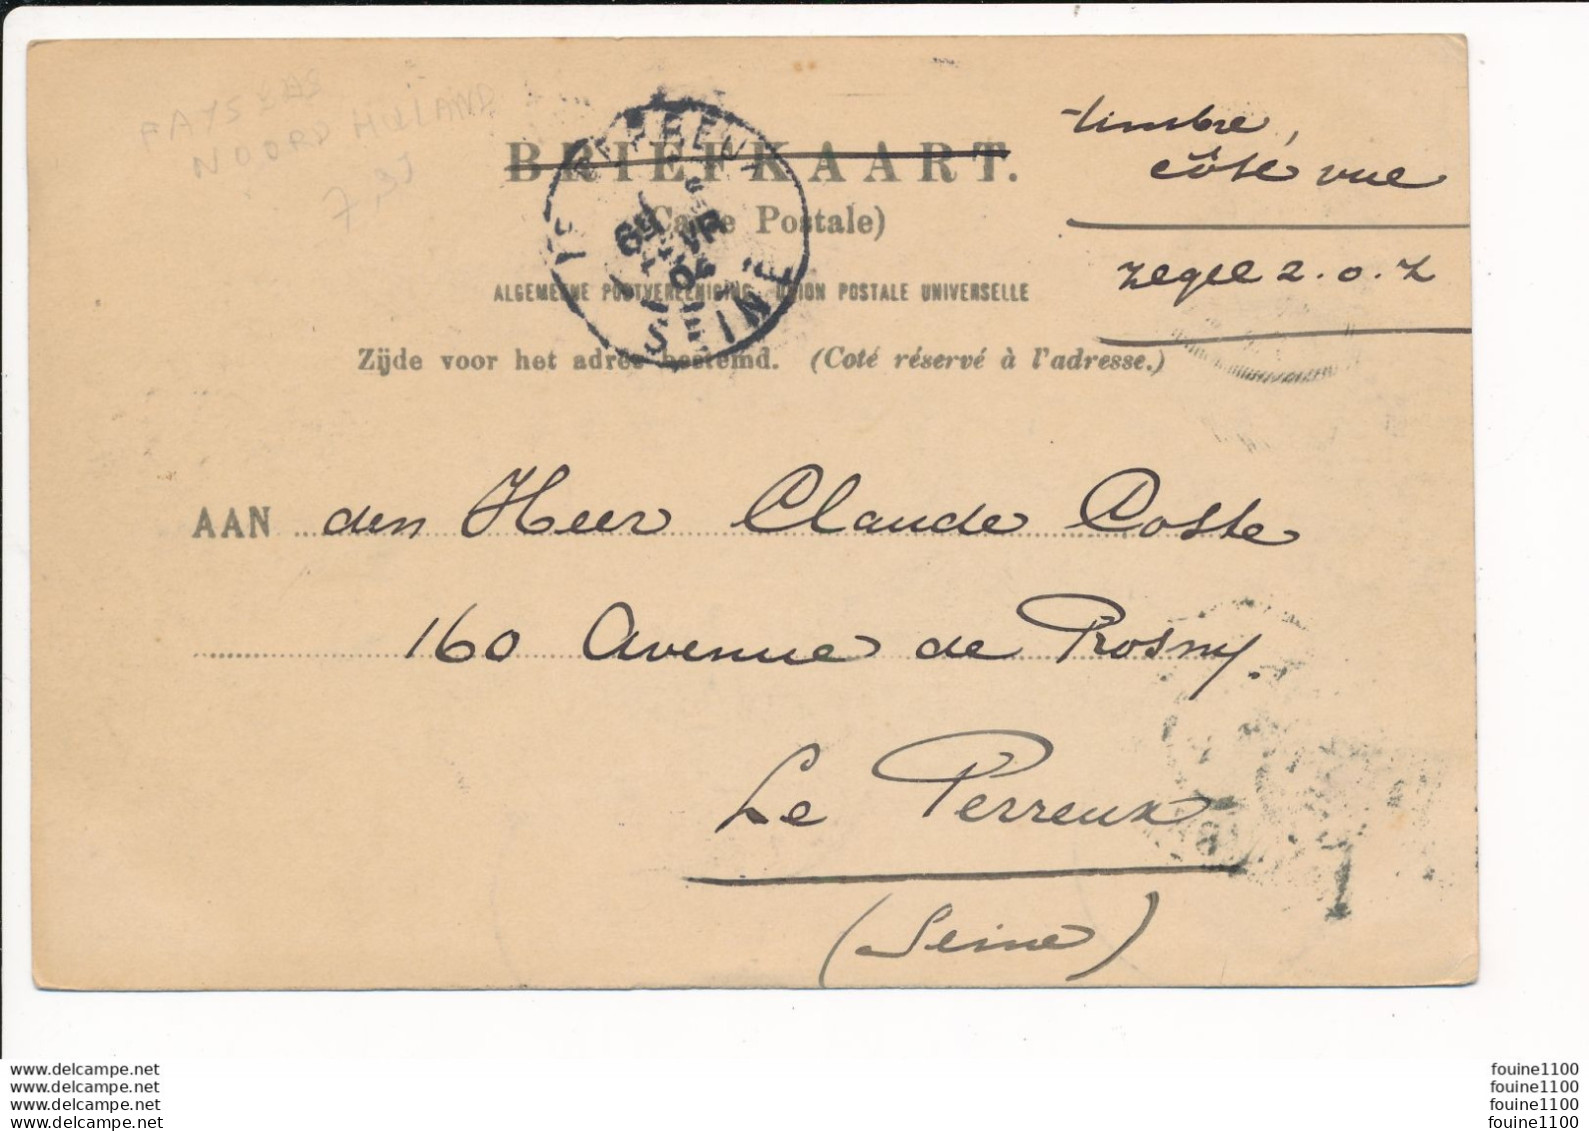 PAYS BAS
NOORD HOLLAND
BRIEFKAART.
(Carte Postale)
ALGEMEENE POSTVEREENIGING. UNION POSTALE UNIVERSELLE
Zijde voor het adres bestemd. (Coté réservé à l'adresse.)
timbre,
côté vue
zegel z.o.z
LE PERREUX
AVR
04
SEINE
AAN den Heer Claude Coste
160 Avenue de Rosny.
Le Perreux
(Seine)
www.delcampe.net
www.delcampe.net
www.delcampe.net
www.delcampe.net
fouine1100
fouine1100
fouine1100
fouine1100